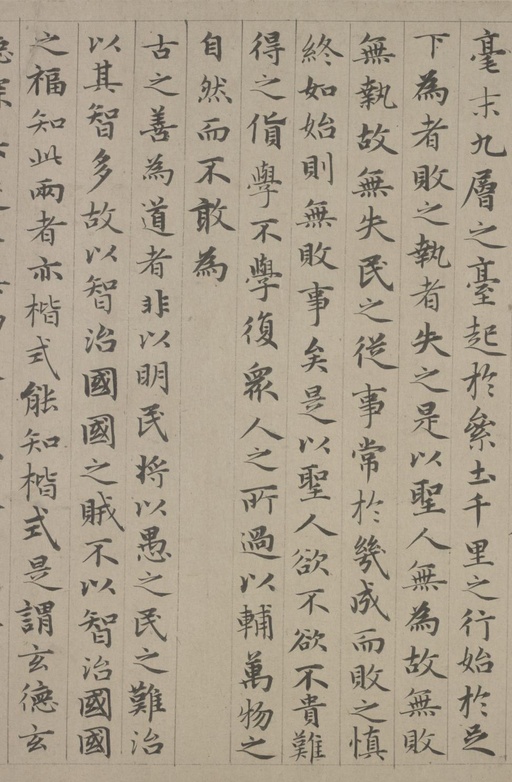 毫末九層之臺起於絫土千里之行始於足
下為者敗之執者失之是以聖人無為故無敗
無執故無失民之從事常於幾成而敗之慎
終如始則無敗事矣是以聖人欲不欲不貴難
得之貨學不學復衆人之所過以輔萬物之
自然而不敢為
古之善為道者非以明民將以愚之民之難治
以其智多故以智治國國之賊不以智治國國
之福知此兩者亦楷式能知楷式是謂玄德玄